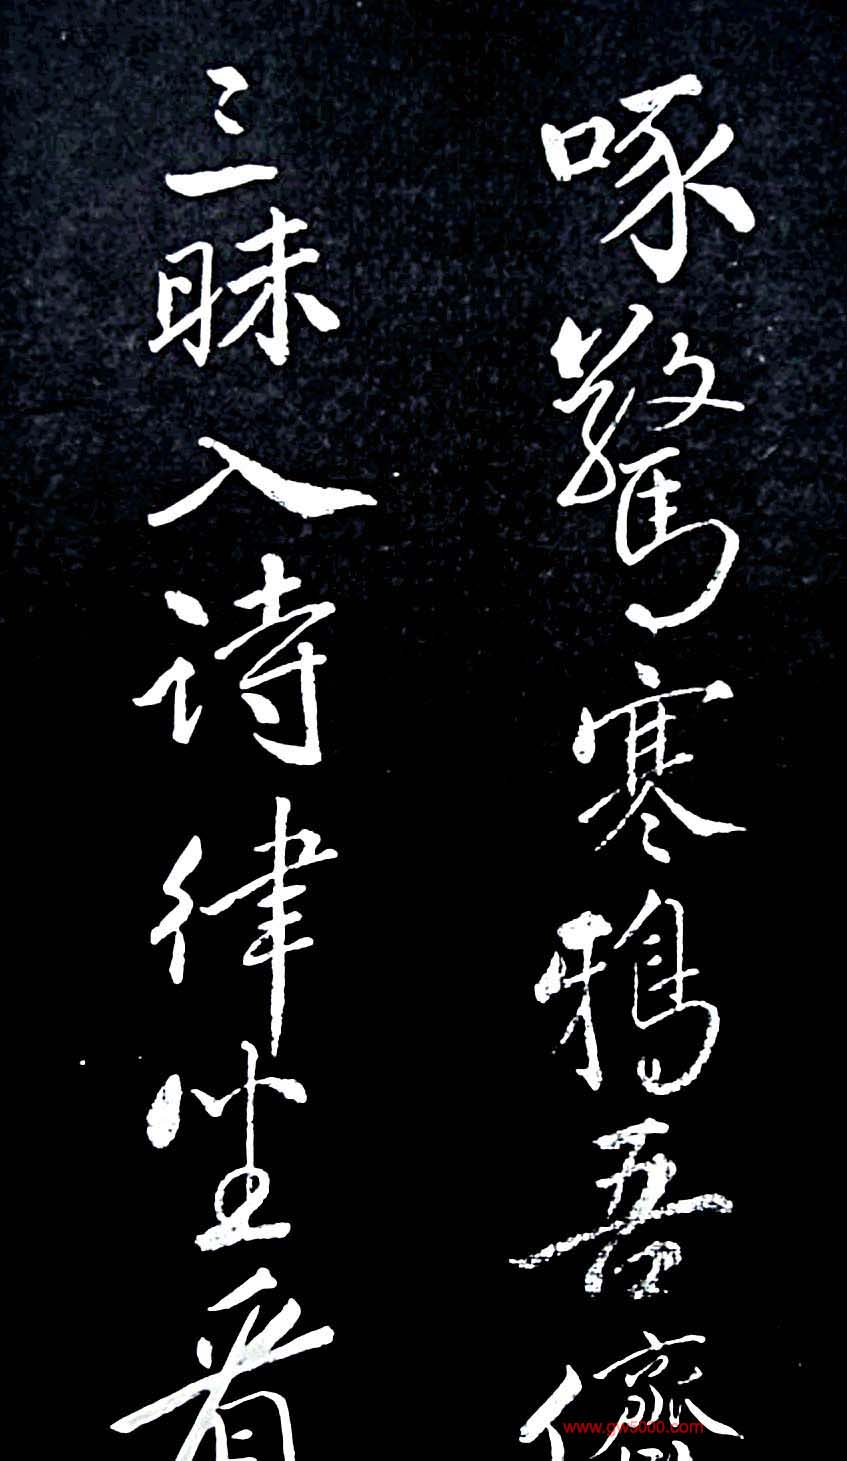 啄驚寒鴉吾儕
三昧入詩律坐看
www.gw5000.com